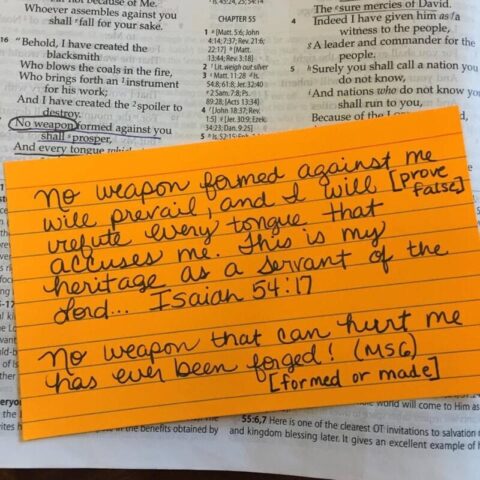 Whoever assembles against you
shall ᵉfall for your sake.
16 "Behold, I have created the
blacksmith
Who blows the coals in the fire,
Who brings forth an ¹instrument
for his work;
And I have created the ²spoiler to
destroy.
No weapon formed against you
shall ᶠprosper,
And every tongue
CHAPTER 55
1 ᵃ[Matt. 5:6; John
4:14; 7:37; Rev. 21:6;
22:17] ᵇ[Matt.
13:44; Rev. 3:18]
2 ¹Lit. weigh out silver
3 ᶜMatt. 11:28 ᵈIs.
54:8; 61:8; Jer. 32:40
ᵉ2 Sam. 7:8; Ps.
89:28; [Acts 13:34]
4 ᶠ[John 18:37; Rev.
1:5] ᵍ[Jer. 30:9; Ezek.
34:23; Dan. 9:25]
5 ʰIs. 52:15;
The ᵉsure mercies of David.
4 Indeed I have given him as ᶠa
witness to the people,
ᵍA leader and commander for the
people.
5 ʰSurely you shall call a nation you
do not know,
ⁱAnd nations who do not know you
shall run to you,
Because of the
No weapon formed against me
will prevail, and I will [prove
refute every tongue that false]
accuses me. This is my
heritage as a servant of the
Lord... Isaiah 54:17
No weapon that can hurt me
has ever been forged! (MSG)
[formed or made]
world will come to Him as
the benefits obtained by
55:6,7 Here is one of the clearest OT invitations to salvation
and kingdom blessing later. It gives an excellent example of